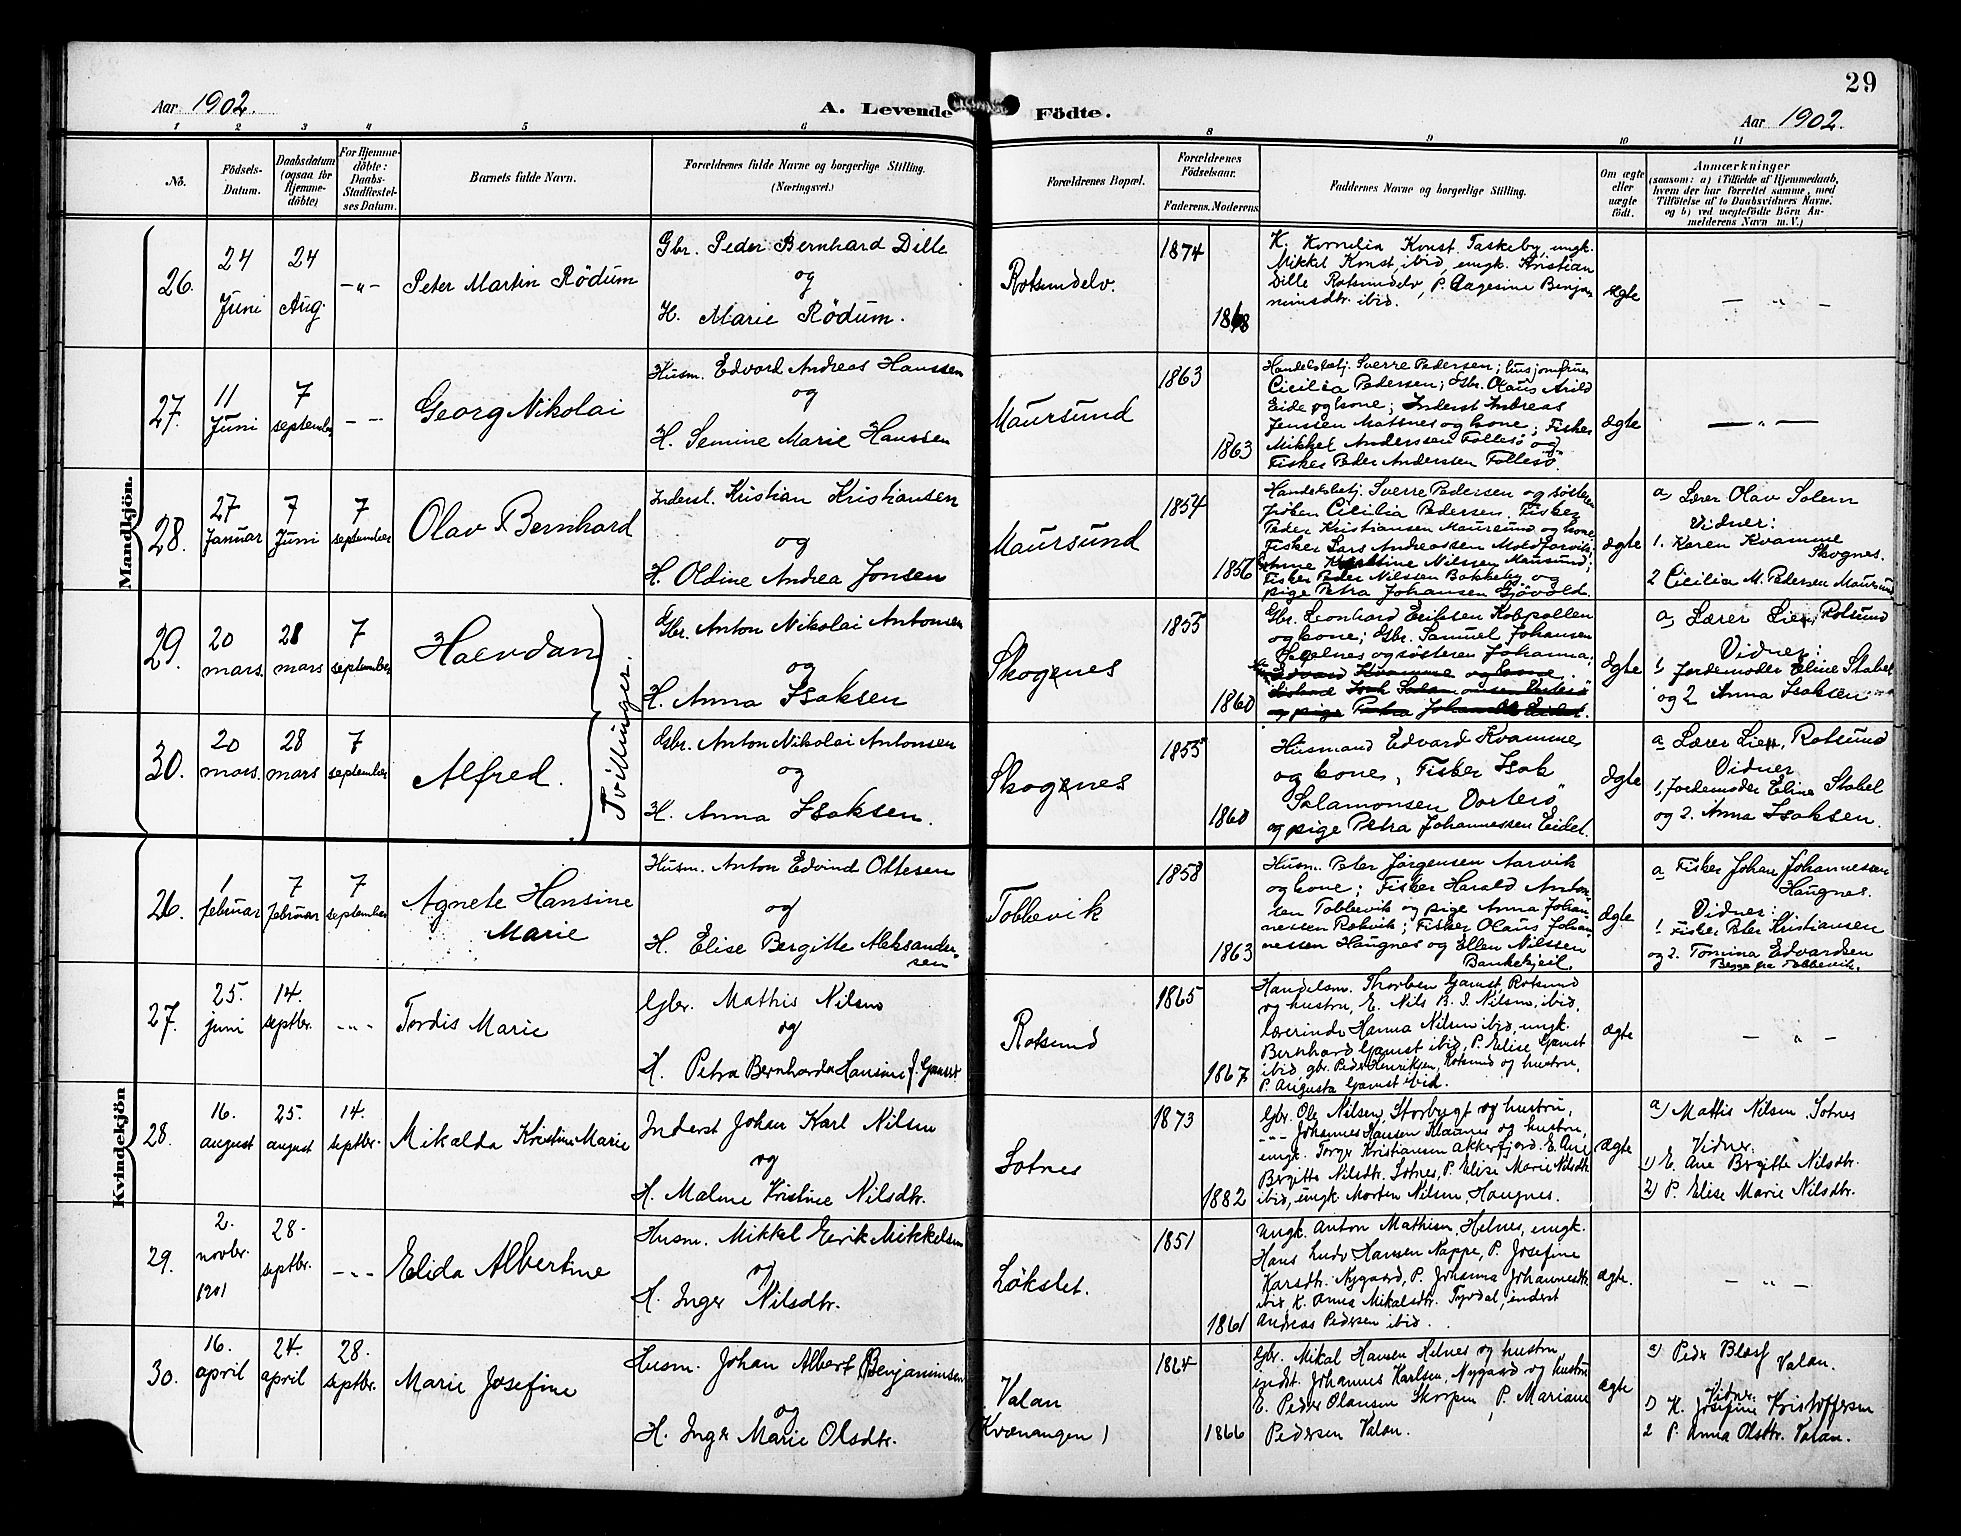 29
Aar 1902.
A. Levende Födte.
Aar 1902.
1 2 3 4 5 6 8 9 10 11
No.
Födsels-Datum.
Daabsdatum (ogsaa for Hjemmedöbte)
For Hjemmedöbte: Daabs-Stadfæstelses Datum.
Barnets fulde Navn.
Forældrenes fulde Navne og borgerlige Stilling. (Næringsvei.)
Forældrenes Bopæl.
Forældrenes Födselsaar.
Faderens. Moderens.
Faddernes Navne og borgerlige Stilling.
Om ægte eller uægte födt.
Anmærkninger
(saasom: a) i Tilfælde af Hjemmedaab, hvem der har forrettet samme, med Tilföielse af to Daabsvidners Navne, og b) ved uægtefödte Börn Anmelderens Navn m.V.)
Mandkjön.
26.
24 Juni
24 Aug.
- „ -
Peter Martin Rödum
Gbr. Peder Bernhard Dille
og
H. Marie Rödum.
Rotsundelv.
1874
1868
K. Kornelia Konst, Taskeby, ungk.
Mikkel Konst, ibid, ungk. Kristian
Dille Rotsundelv, P. Aagesine Benja-
minsdtr. ibid.
ægte
— „ —
27.
11 Juni
7 september
- -
Georg Nikolai
Husm. Edvard Andreas Hanssen
og
H. Semine Marie Hanssen
Maursund
1863
1863
Handelsbetj. Sverre Pedersen; husjomfru
Cicilia Pedersen; Gbr. Olaus Arild
Eide og kone; Inderst Andreas
Jenssen Mattnes og kone; Fisker
Mikkel Anderssen Follesö og
Fisker Peder Andersen Follesö.
ægte
— „ —
28.
27 Januar
7 Juni
7 september
Olav Bernhard
Inderst. Kristian Kristiansen
og
H. Oldine Andrea Jonsen
Maursund
1854
1856
Handelsbetj. Sverre Pedersen og søsteren
Jfr Cicilia Pedersen. Fisker
Peder Kristiansen Maursund og kone
Fisker Lars Andreassen Moldforvik,
Anne Kirstine Nilssen Maursund;
Fisker Peder Nilssen Bakkeby og
pige Petra Johansen Gjövold.
ægte
a) Lærer Olav Solem
Vidner:
1. Karen Kvamme
Skognes.
2 Cicilia M. Pedersen Maursund
29.
20 mars
28 mars
7 september
Halvdan
Tvillinger.
Gbr. Anton Nikolai Antonsen
og
H. Anna Isaksen
Skognes
1855
1860
Gbr. Leonhard Eriksen Kobpollen
og kone; Gbr. Samuel Johansen
Helnes og søsteren Johanna;
Edvard Kvamme og kone
ægte
a) Lærer Lien, Rotsund
Vidner:
1. Jordemoder Eline Stabel
og 2 Anna Isaksen
30.
20 mars.
28 mars
7 september
Alfred.
Gbr. Anton Nikolai Antonsen
og
H. Anna Isaksen.
Skognes
1855
1860
Husmand Edvard Kvamme
og kone, Fisker Isak
Salamonsen Vorterö
og pige Petra Johannessen Eidet.
ægte
a Lærer Lien, Rotsund
Vidner
1, Jordemoder Eline Stabel
og 2. Anna Isaksen.
Kvindekjön
26.
1 februar
7 februar
7 september
Agnete Hansine
Marie
Husm. Anton Edvind Ottesen
og
H. Elise Bergitte Aleksander-
sen
Tobbevik
1858
1863
Husm. Peter Jørgensen Aarvik
og kone; Fisker Harald Anton-
sen Tobbevik og pige Anna Johan-
nessen Rakvik; Fisker Olaus Johan-
nessen Haugnes og Ellen Nilssen
Bankekjeil.
ægte
a Fisker Johan Johannessen
Haugnes.
Vidner:
1. Fisker Peter Kristiansen
og 2. Tomina Edvardsen
Begge fra Tobbevik.
27.
25. juni
14. septbr.
- „ -
Tordis Marie
Gbr. Mathis Nilsen
og
H. Petra Bernharda Hansine f. Gamst
Rotsund
1865
1867
Handelsm. Thorben Gamst, Rotsund
og hustru, E. Nils B. I. Nilsen, ibid,
lærerinde Hanna Nilsen ibid, ungk.
Bernhard Gamst ibid, P. Elise Gamst
ibid, gbr. Peder Henriksen, Rotsund og hustru,
P. Augusta Gamst ibid.
ægte
— „ —
28.
16. august
25. august
14. septbr.
Mikalda Kristine Marie
Inderst Johan Karl Nilsen
og
H. Malene Kristine Nilsdtr.
Sotnes
1873
1882
Gbr. Ole Nilsen, Storbygt og hustru,
-„- Johannes Hansen Klaanes og hustru,
ungk. Torger Kristiansen Akkerfjord. E. Ane
Birgitte Nilsdtr. Sotnes, P. Elise Marie Nilsdtr.
ibid, ungk. Morten Nilsen, Haugnes.
ægte
a) Mattis Nilsen, Sotnes
Vidner:
1) E. Ane Birgitte Nilsdtr.
2) P. Elise Marie Nilsdtr.
29.
2. novbr. 1901
28. septbr.
- „ -
Elida Albertine
Husm. Mikkel Eerik Mikkelsen
og
H. Inger Nilsdtr.
Lökslet.
1851
1861
Ungk. Anton Mathisen, Helnes, ungk.
Hans Ludv. Hansen Nappe, P. Josefine
Karsdtr. Nygaard, P. Johanna Johannesdtr.
ibid, K. Anna Mikalsdtr. Tyvdal, inderst
Andreas Pedersen ibid.
ægte.
— „ —
30.
16. april
24. april
28. septbr.
Marie Josefine
Husm. Johan Albert Benjaminsen
og
H. Inger Marie Olsdtr.
Valan
(Kvænangen)
1864
1866
Gbr. Mikal Hansen Helnes og hustru,
inderst. Johannes Karlsen, Nygaard og hustru
E. Peder Olausen Skorpen, P. Mariane
Pedersen Valan.
ægte
a) Peder Blæst
Valan.
Vidner:
1) K. Josefine Kristoffersen
2 P. Anna Olsdtr. Valan.